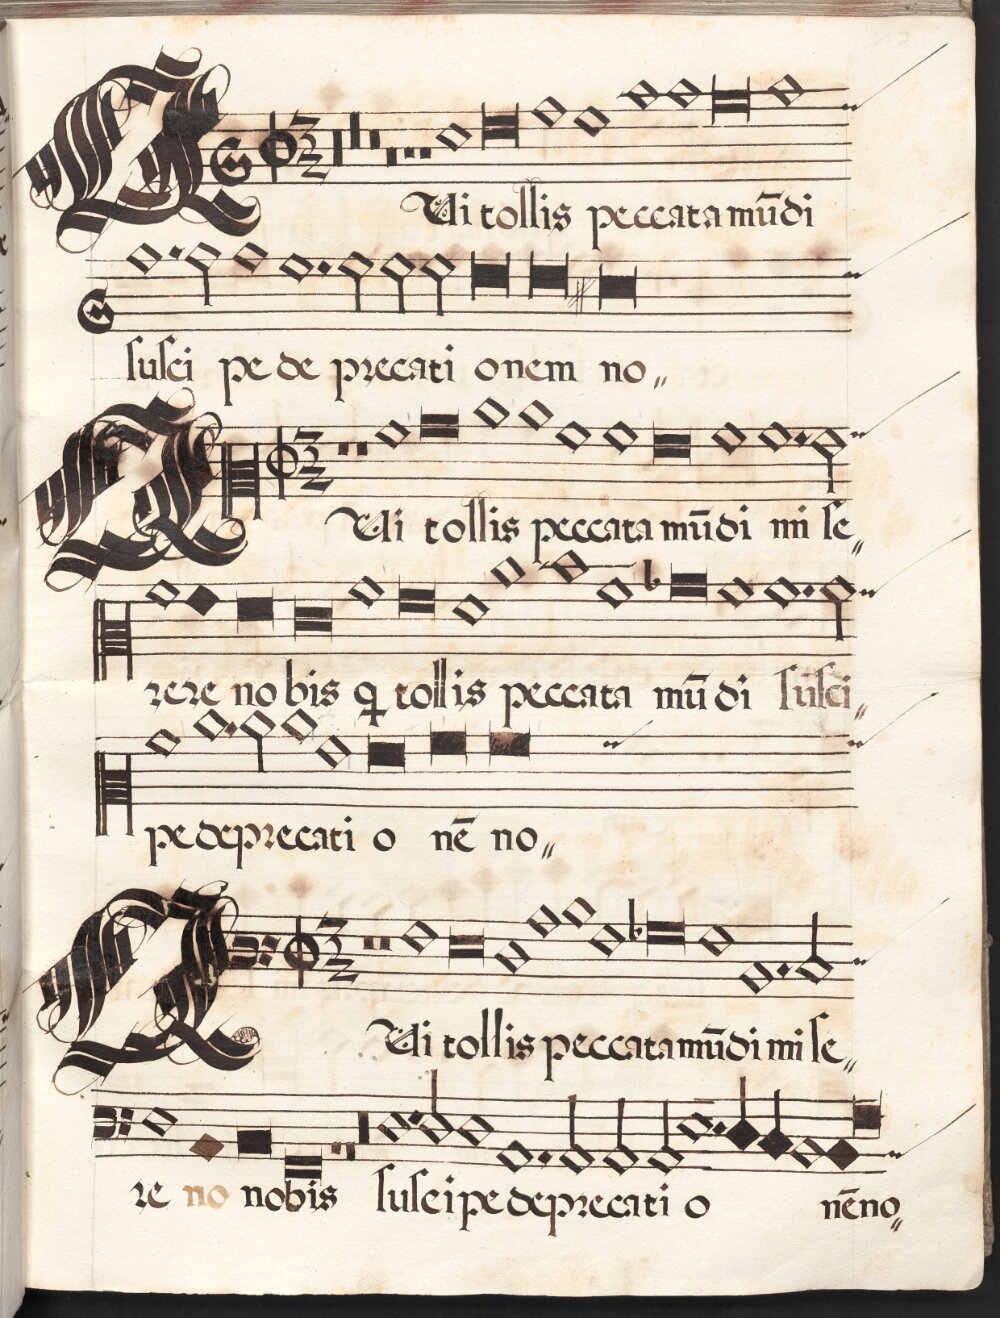 QUi tollis peccata mūdi
suscipe de precati onem no„
QUi tollis peccata mūdi mi se„
rere no bis q tollis peccata mūdi susci„
pe deprecati o nē no„
QUi tollis peccata mūdi mi se„
re no nobis suscipe deprecati o nē no„